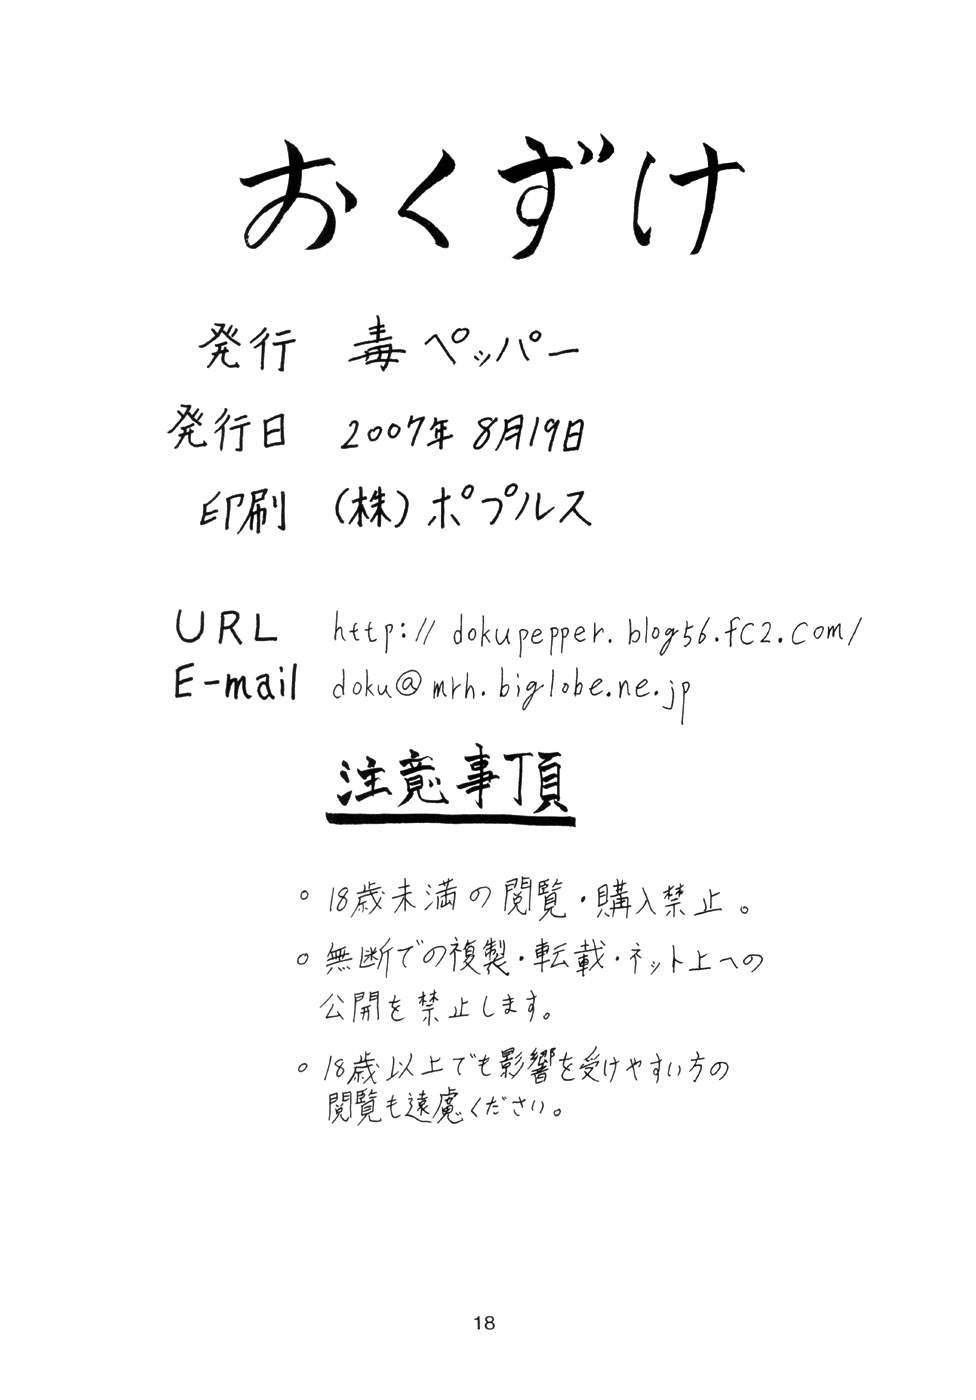 おくずけ
発行 毒ペッパー
発行日 2007年 8月19日
印刷 (株)ポプルス
URL http://dokupepper.blog56.fc2.com/
E-mail doku@mrh.biglobe.ne.jp
注意事項
。18歳未満の閲覧・購入禁止。
。無断での複製・転載・ネット上への
公開を禁止します。
。18歳以上でも影響を受けやすい方の
閲覧も遠慮ください。
18